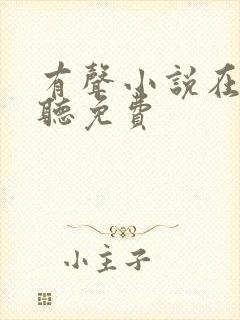 有聲小說在
聽免費
小主子